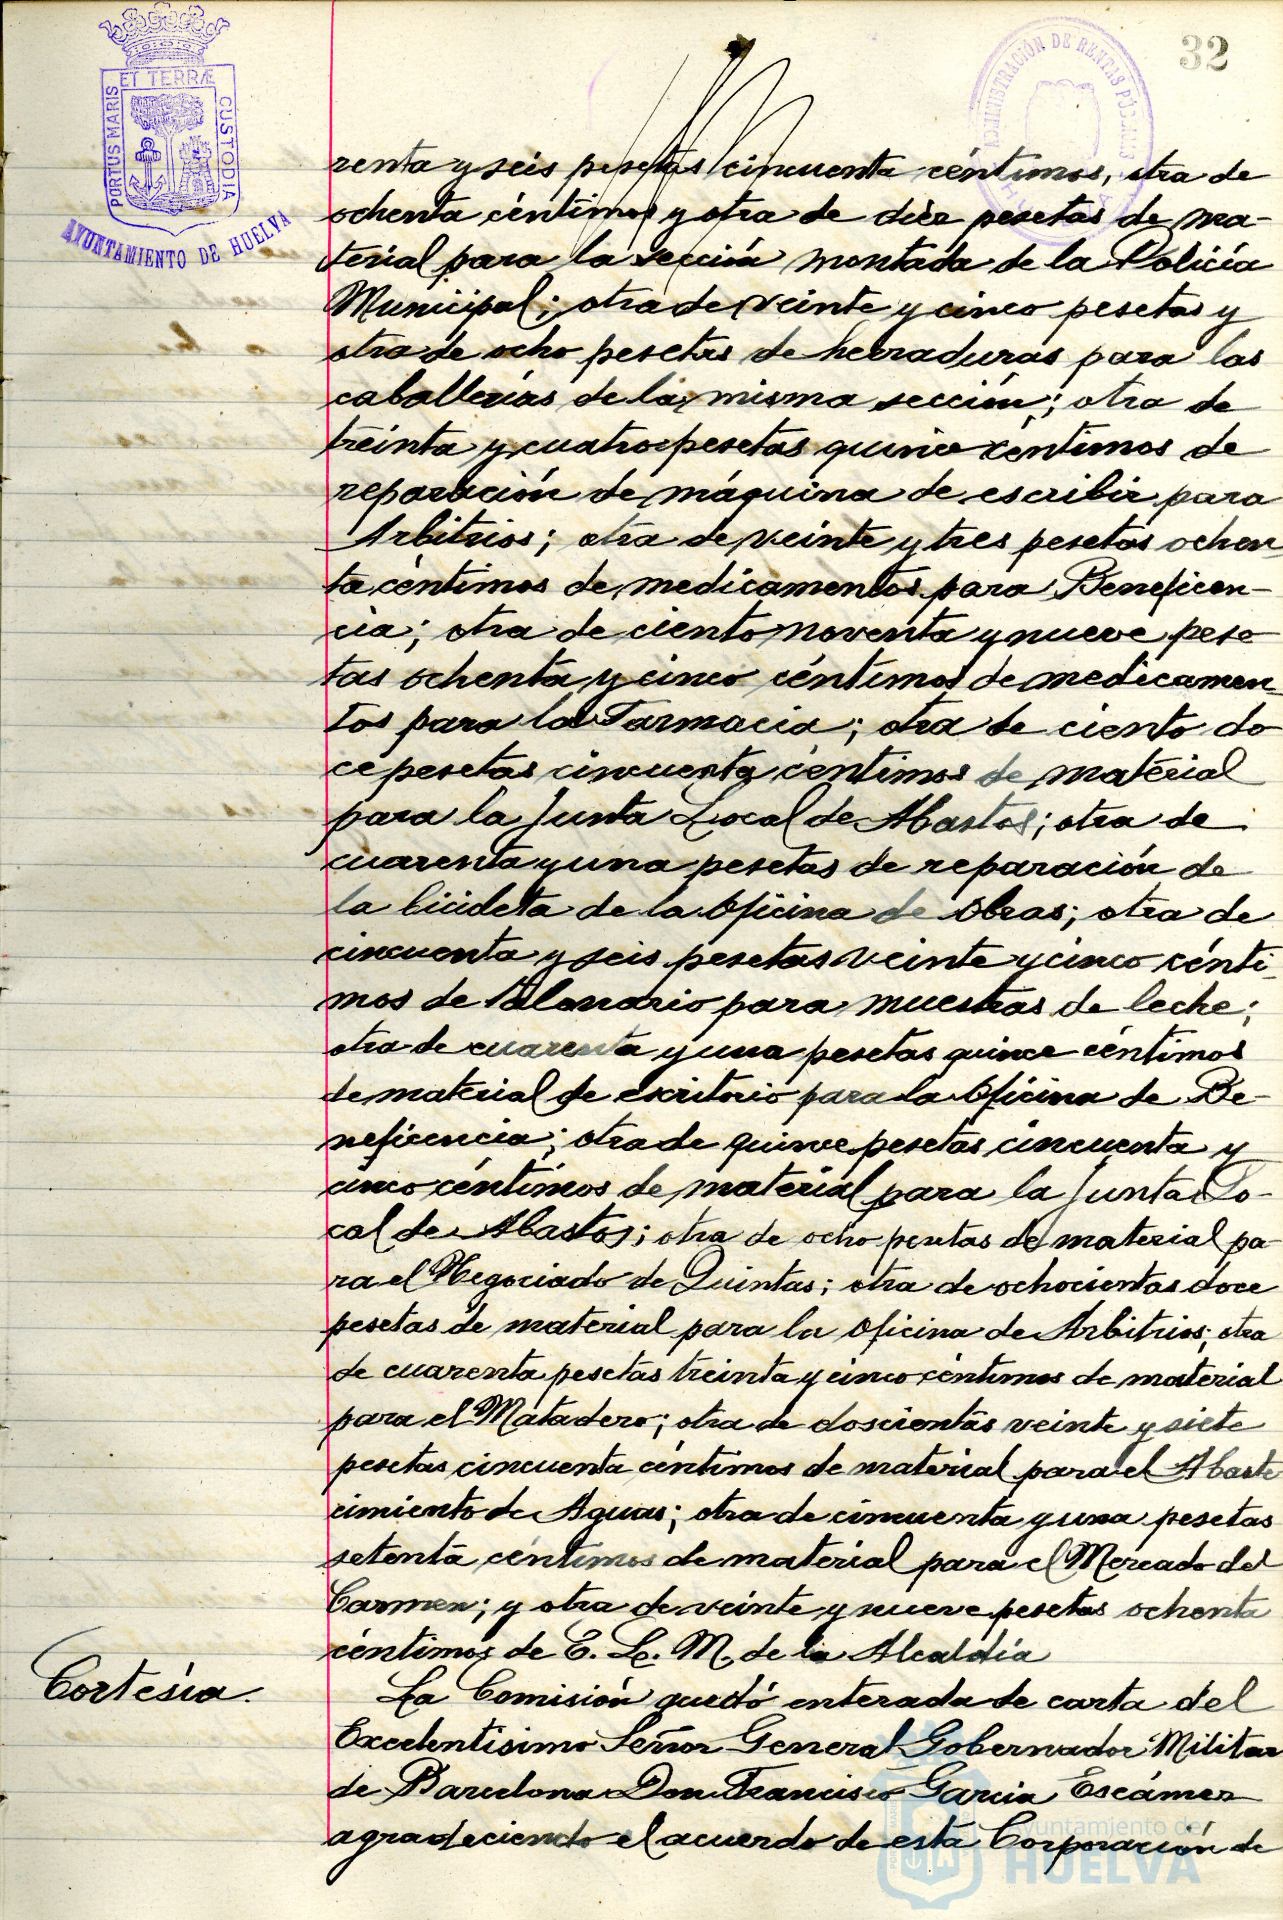 PORTUS MARIS ET TERRÆ CUSTODIA
AYUNTAMIENTO DE HUELVA
ADMINISTRACIÓN DE RENTAS PÚBLICAS
32
renta y seis pesetas cincuenta céntimos, otra de
ochenta céntimos y otra de diez pesetas de ma-
terial para la sección montada de la Policía
Municipal; otra de veinte y cinco pesetas y
otra de ocho pesetas de herraduras para las
caballerías de la misma sección; otra de
treinta y cuatro pesetas quince céntimos de
reparación de máquina de escribir para
Arbitrios; otra de veinte y tres pesetas ochen-
ta céntimos de medicamentos para Beneficen-
cia; otra de ciento noventa y nueve pese-
tas ochenta y cinco céntimos de medicamen-
tos para la Farmacia; otra de ciento do
ce pesetas cincuenta céntimos de material
para la Junta Local de Abastos; otra de
cuarenta y una pesetas de reparación de
la bicicleta de la Oficina de Obras; otra de
cincuenta y seis pesetas veinte y cinco cénti-
mos de talonario para muestras de leche;
otra de cuarenta y una pesetas quince céntimos
de material de escritorio para la Oficina de Be-
neficencia; otra de quince pesetas cincuenta y
cinco céntimos de material para la Junta Lo-
cal de Abastos; otra de ocho pesetas de material pa-
ra el Negociado de Quintas; otra de ochocientas doce
pesetas de material para la Oficina de Arbitrios; otra
de cuarenta pesetas treinta y cinco céntimos de material
para el Matadero; otra de doscientas veinte y siete
pesetas cincuenta céntimos de material para el Abaste
cimiento de Aguas; otra de cincuenta y una pesetas
setenta céntimos de material para el Mercado del
Carmen; y otra de veinte y nueve pesetas ochenta
céntimos de E. L. M. de la Alcaldía
Cortesía.
La Comisión quedó enterada de carta del
Excelentísimo Señor General Gobernador Militar
de Barcelona Don Francisco García Escámez
agradeciendo el acuerdo de esta Corporación de
Ayuntamiento de
HUELVA